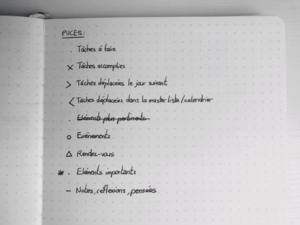 PUCES:
. Tâches à faire
× Tâches accomplies
> Tâches déplacées le jour suivant
< Tâches déplacées dans la master liste/calendrier
. Eléments plus pertinents
o Evénements
△ Rendez-vous
* . Eléments importants
- Notes, réflexions, pensées